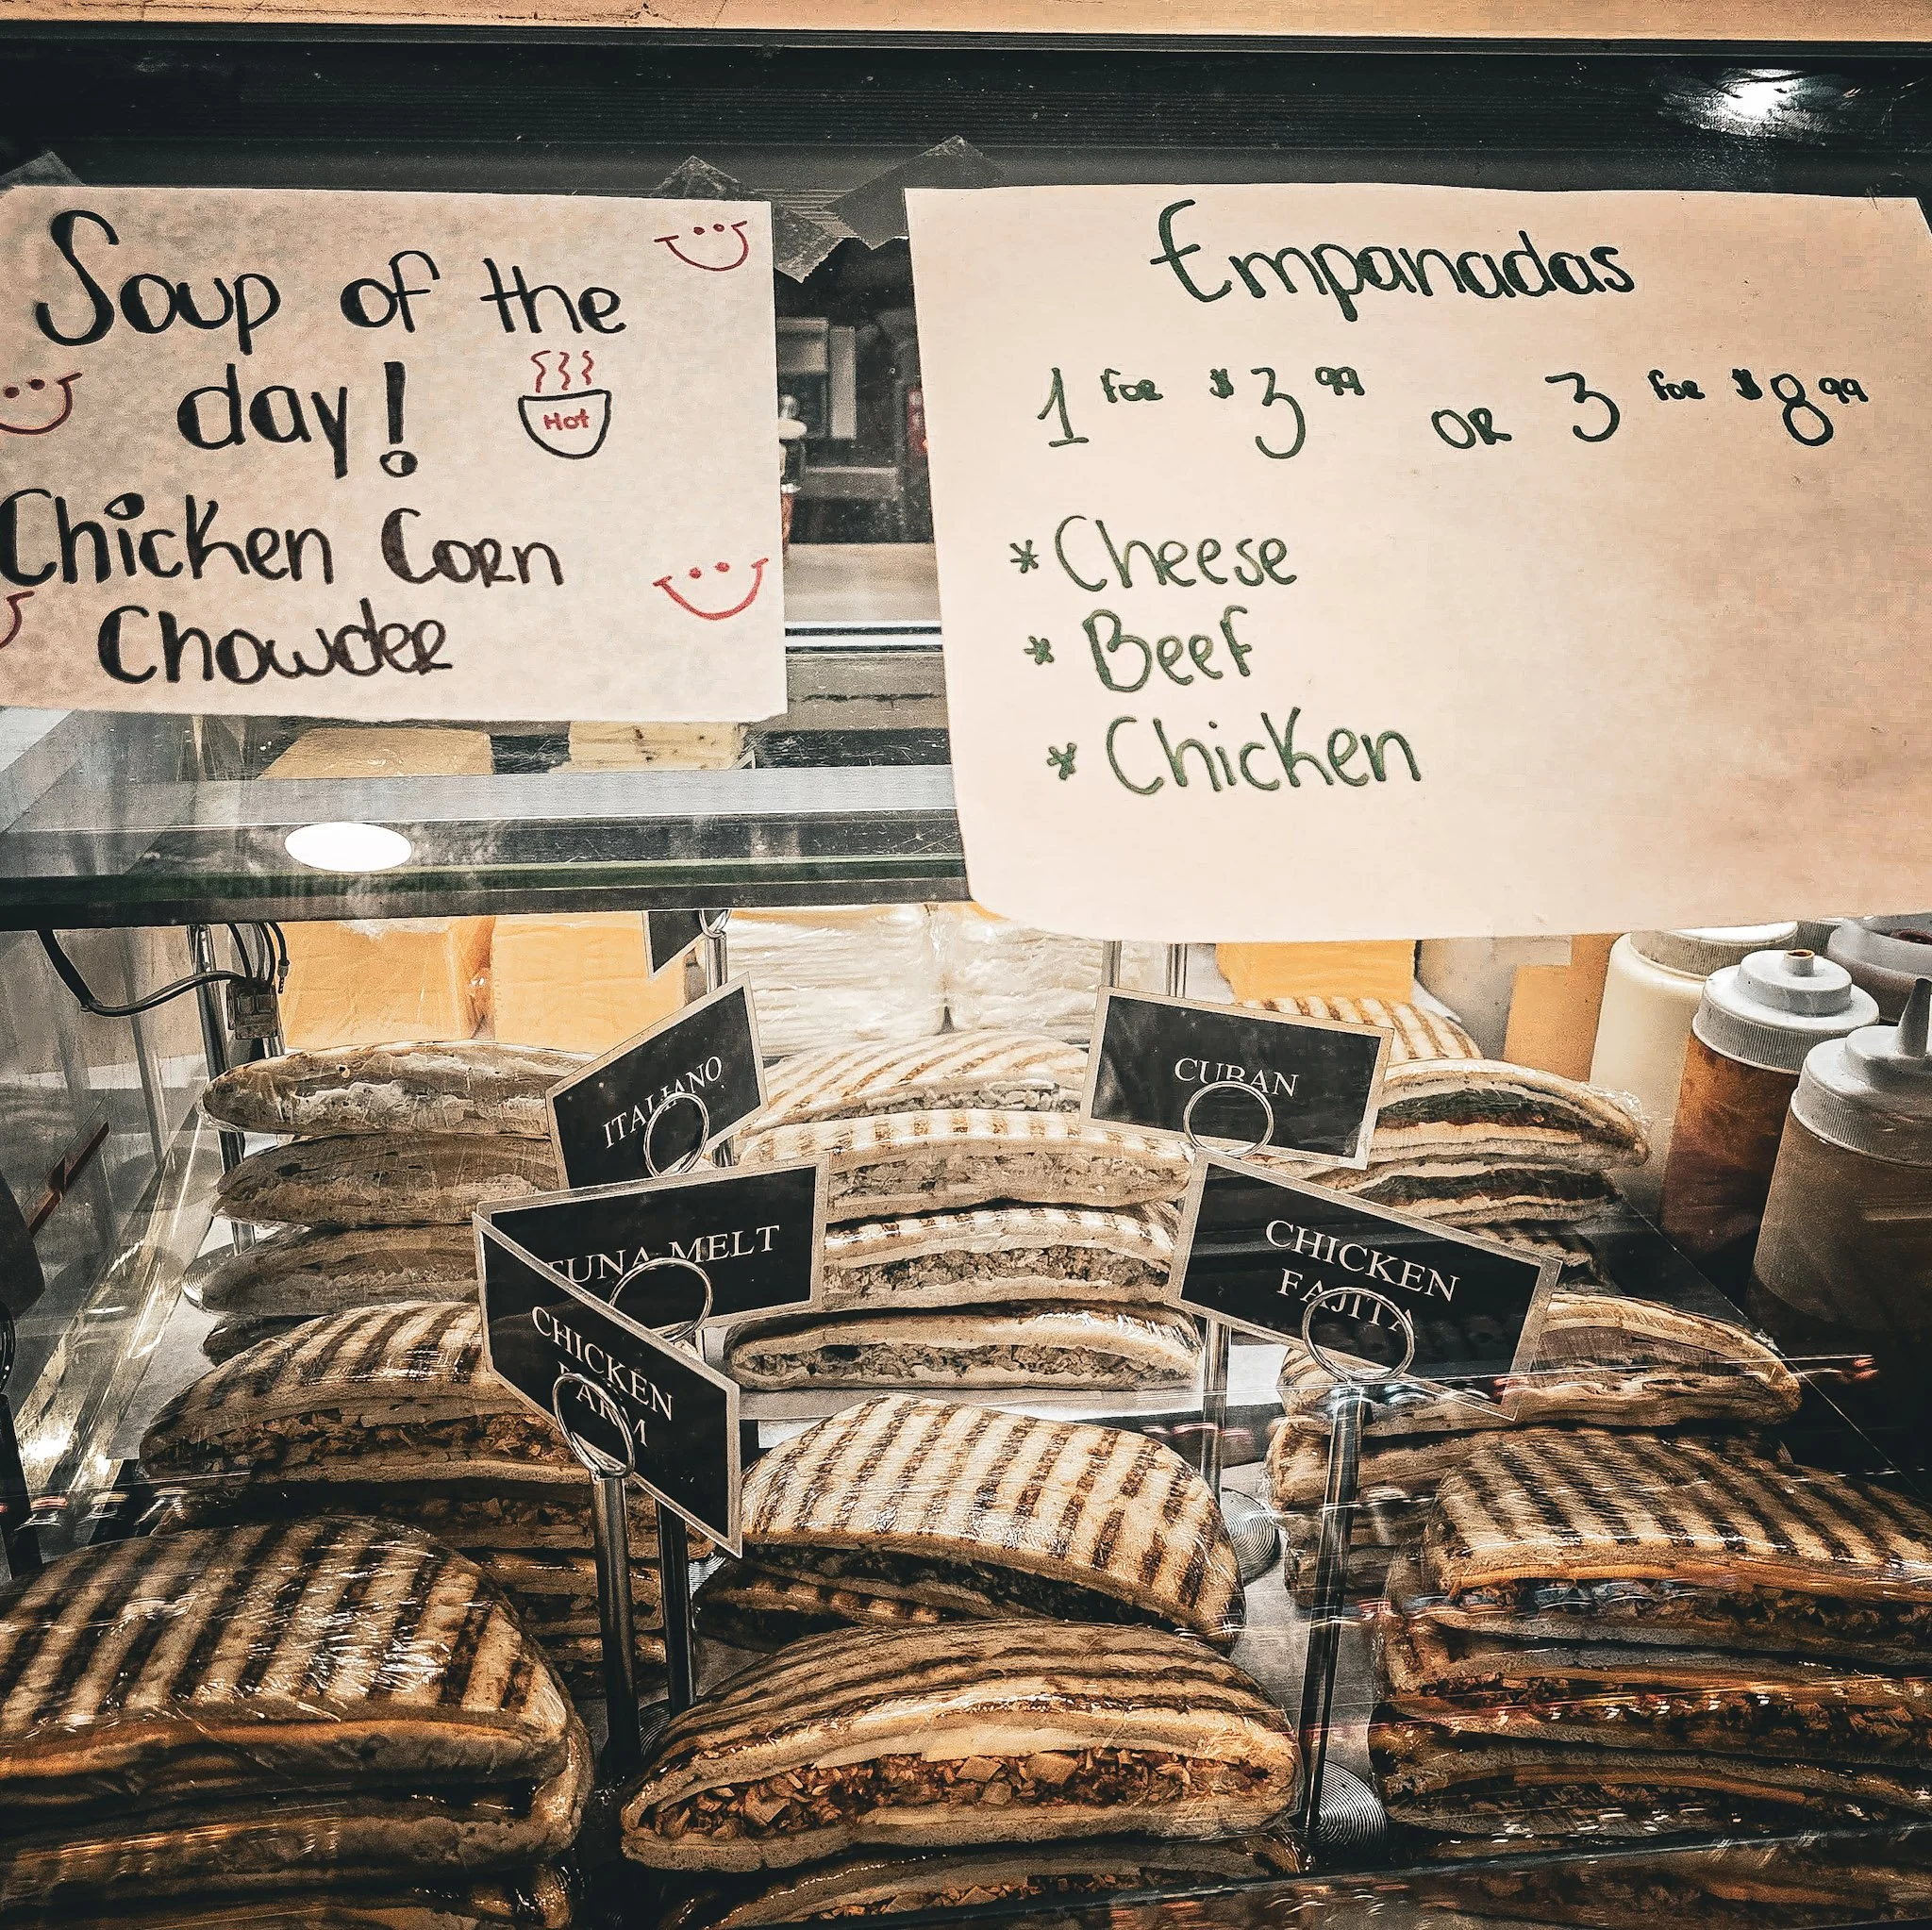 Soup of the
day!
Hot
Chicken Corn
Chowder
Empanadas
1 for $3.99 OR 3 for $8.99
* Cheese
* Beef
* Chicken
ITALIANO
CUBAN
TUNA MELT
CHICKEN
FAJITA
CHICKEN
PARM